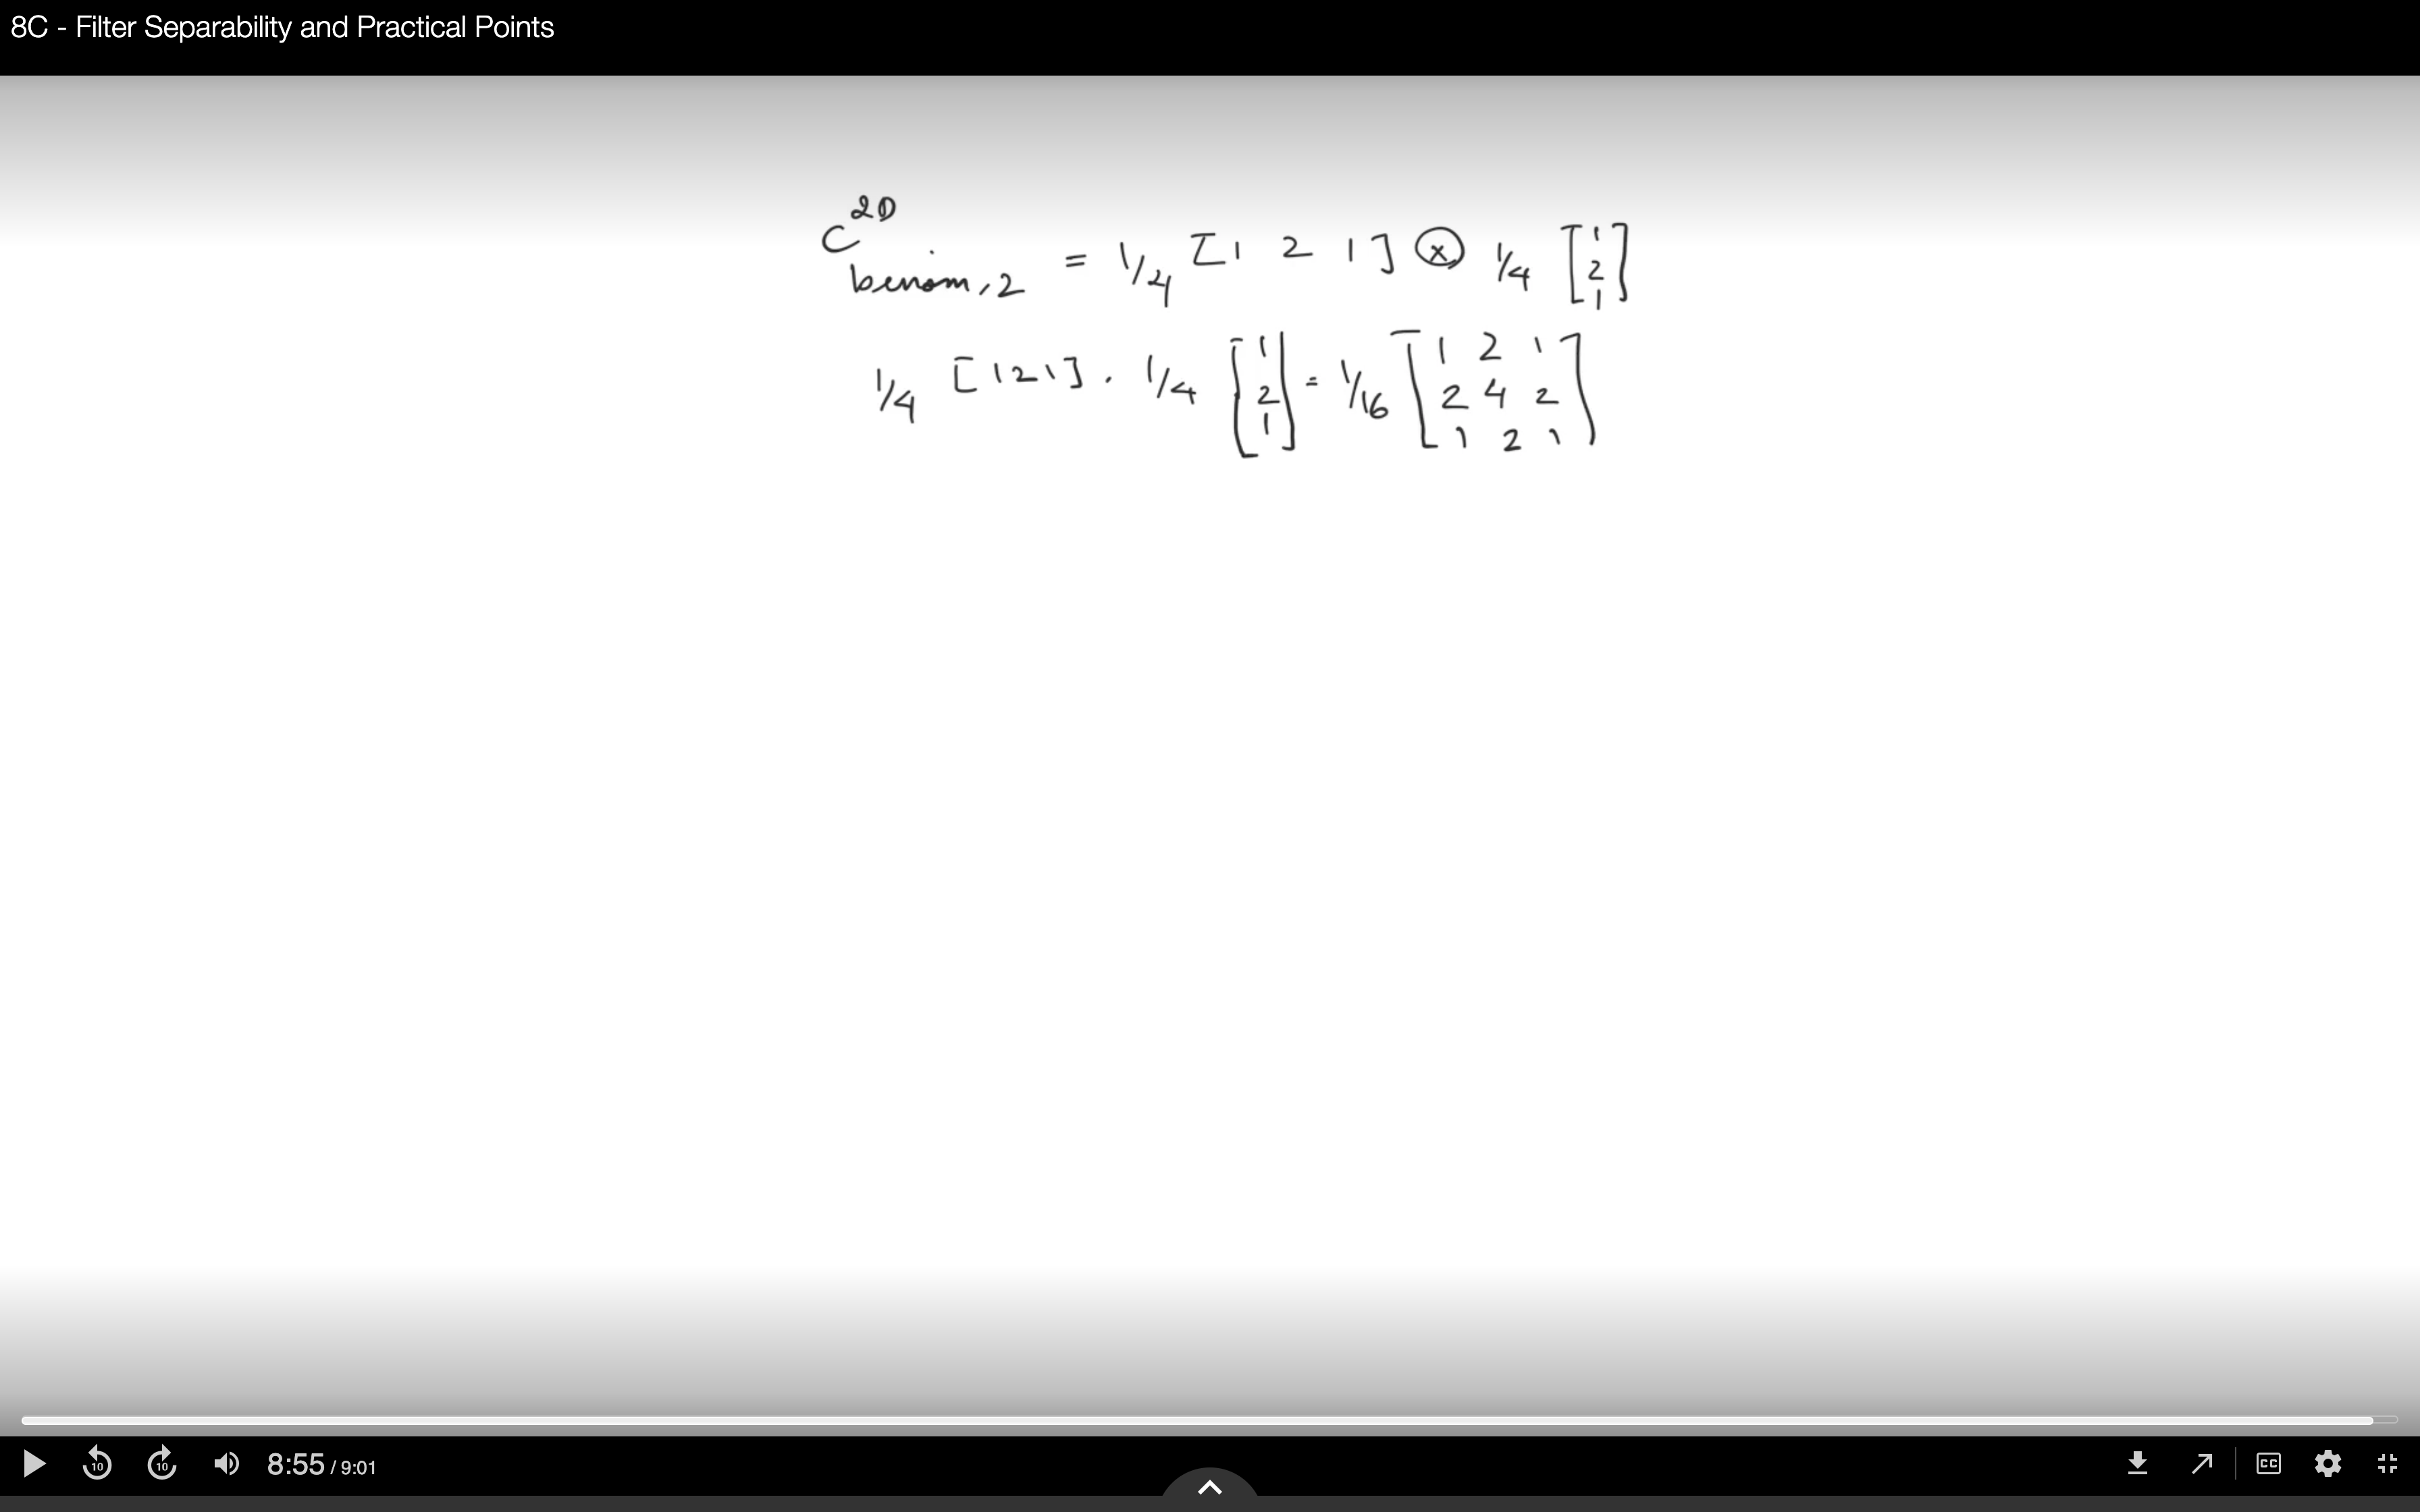 8C - Filter Separability and Practical Points
C^2D benom,2 = 1/4 [1 2 1] ⊗ 1/4 [1 2 1]
1/4 [1 2 1] . 1/4 [1 2 1] = 1/16 [1 2 1
2 4 2
1 2 1]
10 10 8:55 / 9:01 CC